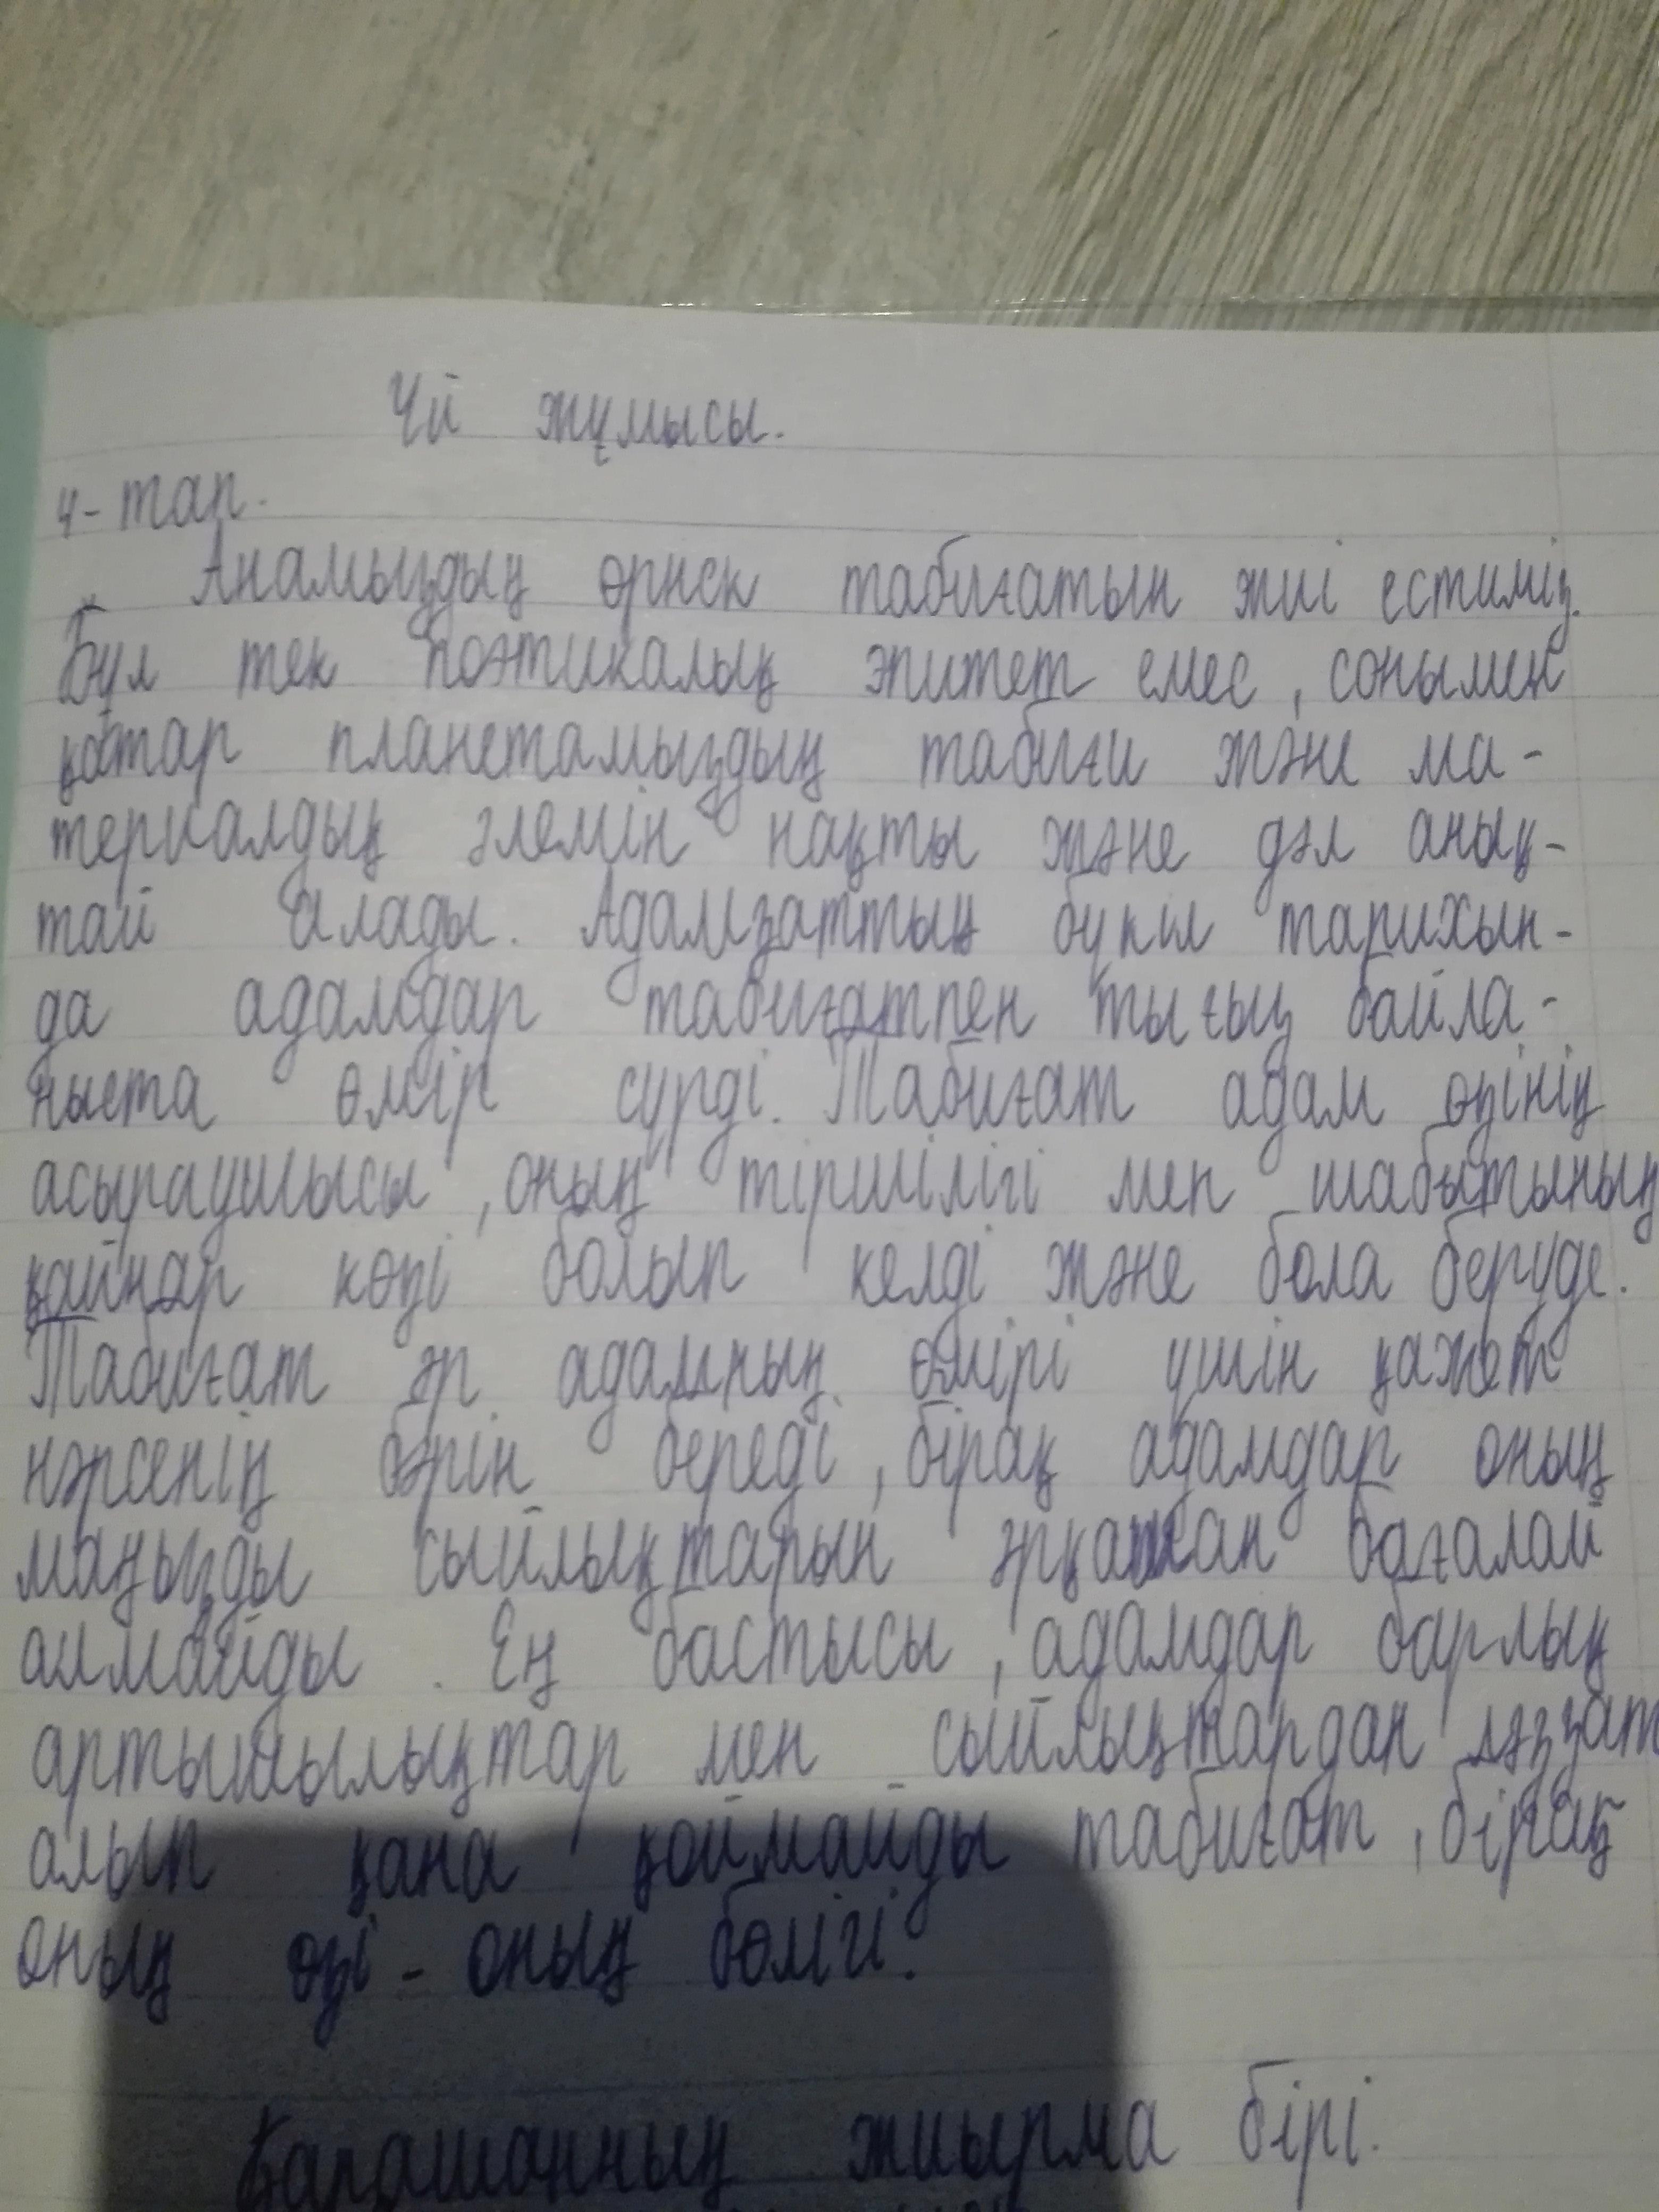 Үй жұмысы.
4-тап.
Анамыздың өрнек табиғатын жиі естиміз.
Бұл тек поэтикалық эпитет емес, сонымен
қатар планетамыздың табиғи және ма-
териалдық әлемін нақты және дәл анық-
тай алады. Адамзаттың бүкіл тарихын-
да адамдар табиғатпен тығыз байла-
ныста өмір сүрді. Табиғат адам өзінің
асыраушысы, оның тіршілігі мен шабытының
қайнар көзі болып келді және бола беруде.
Табиғат әр адамның өмірі үшін қажет
нәрсенің бәрін береді, бірақ адамдар оның
маңызды сыйлықтарын әрқашан бағалай
алмайды. Ең бастысы, адамдар барлық
артықшылықтар мен сыйлықтардан ләззат
алып қана қоймайды табиғат, бірақ
оның өзі - оның бөлігі.
Қарашаның жиырма бірі.